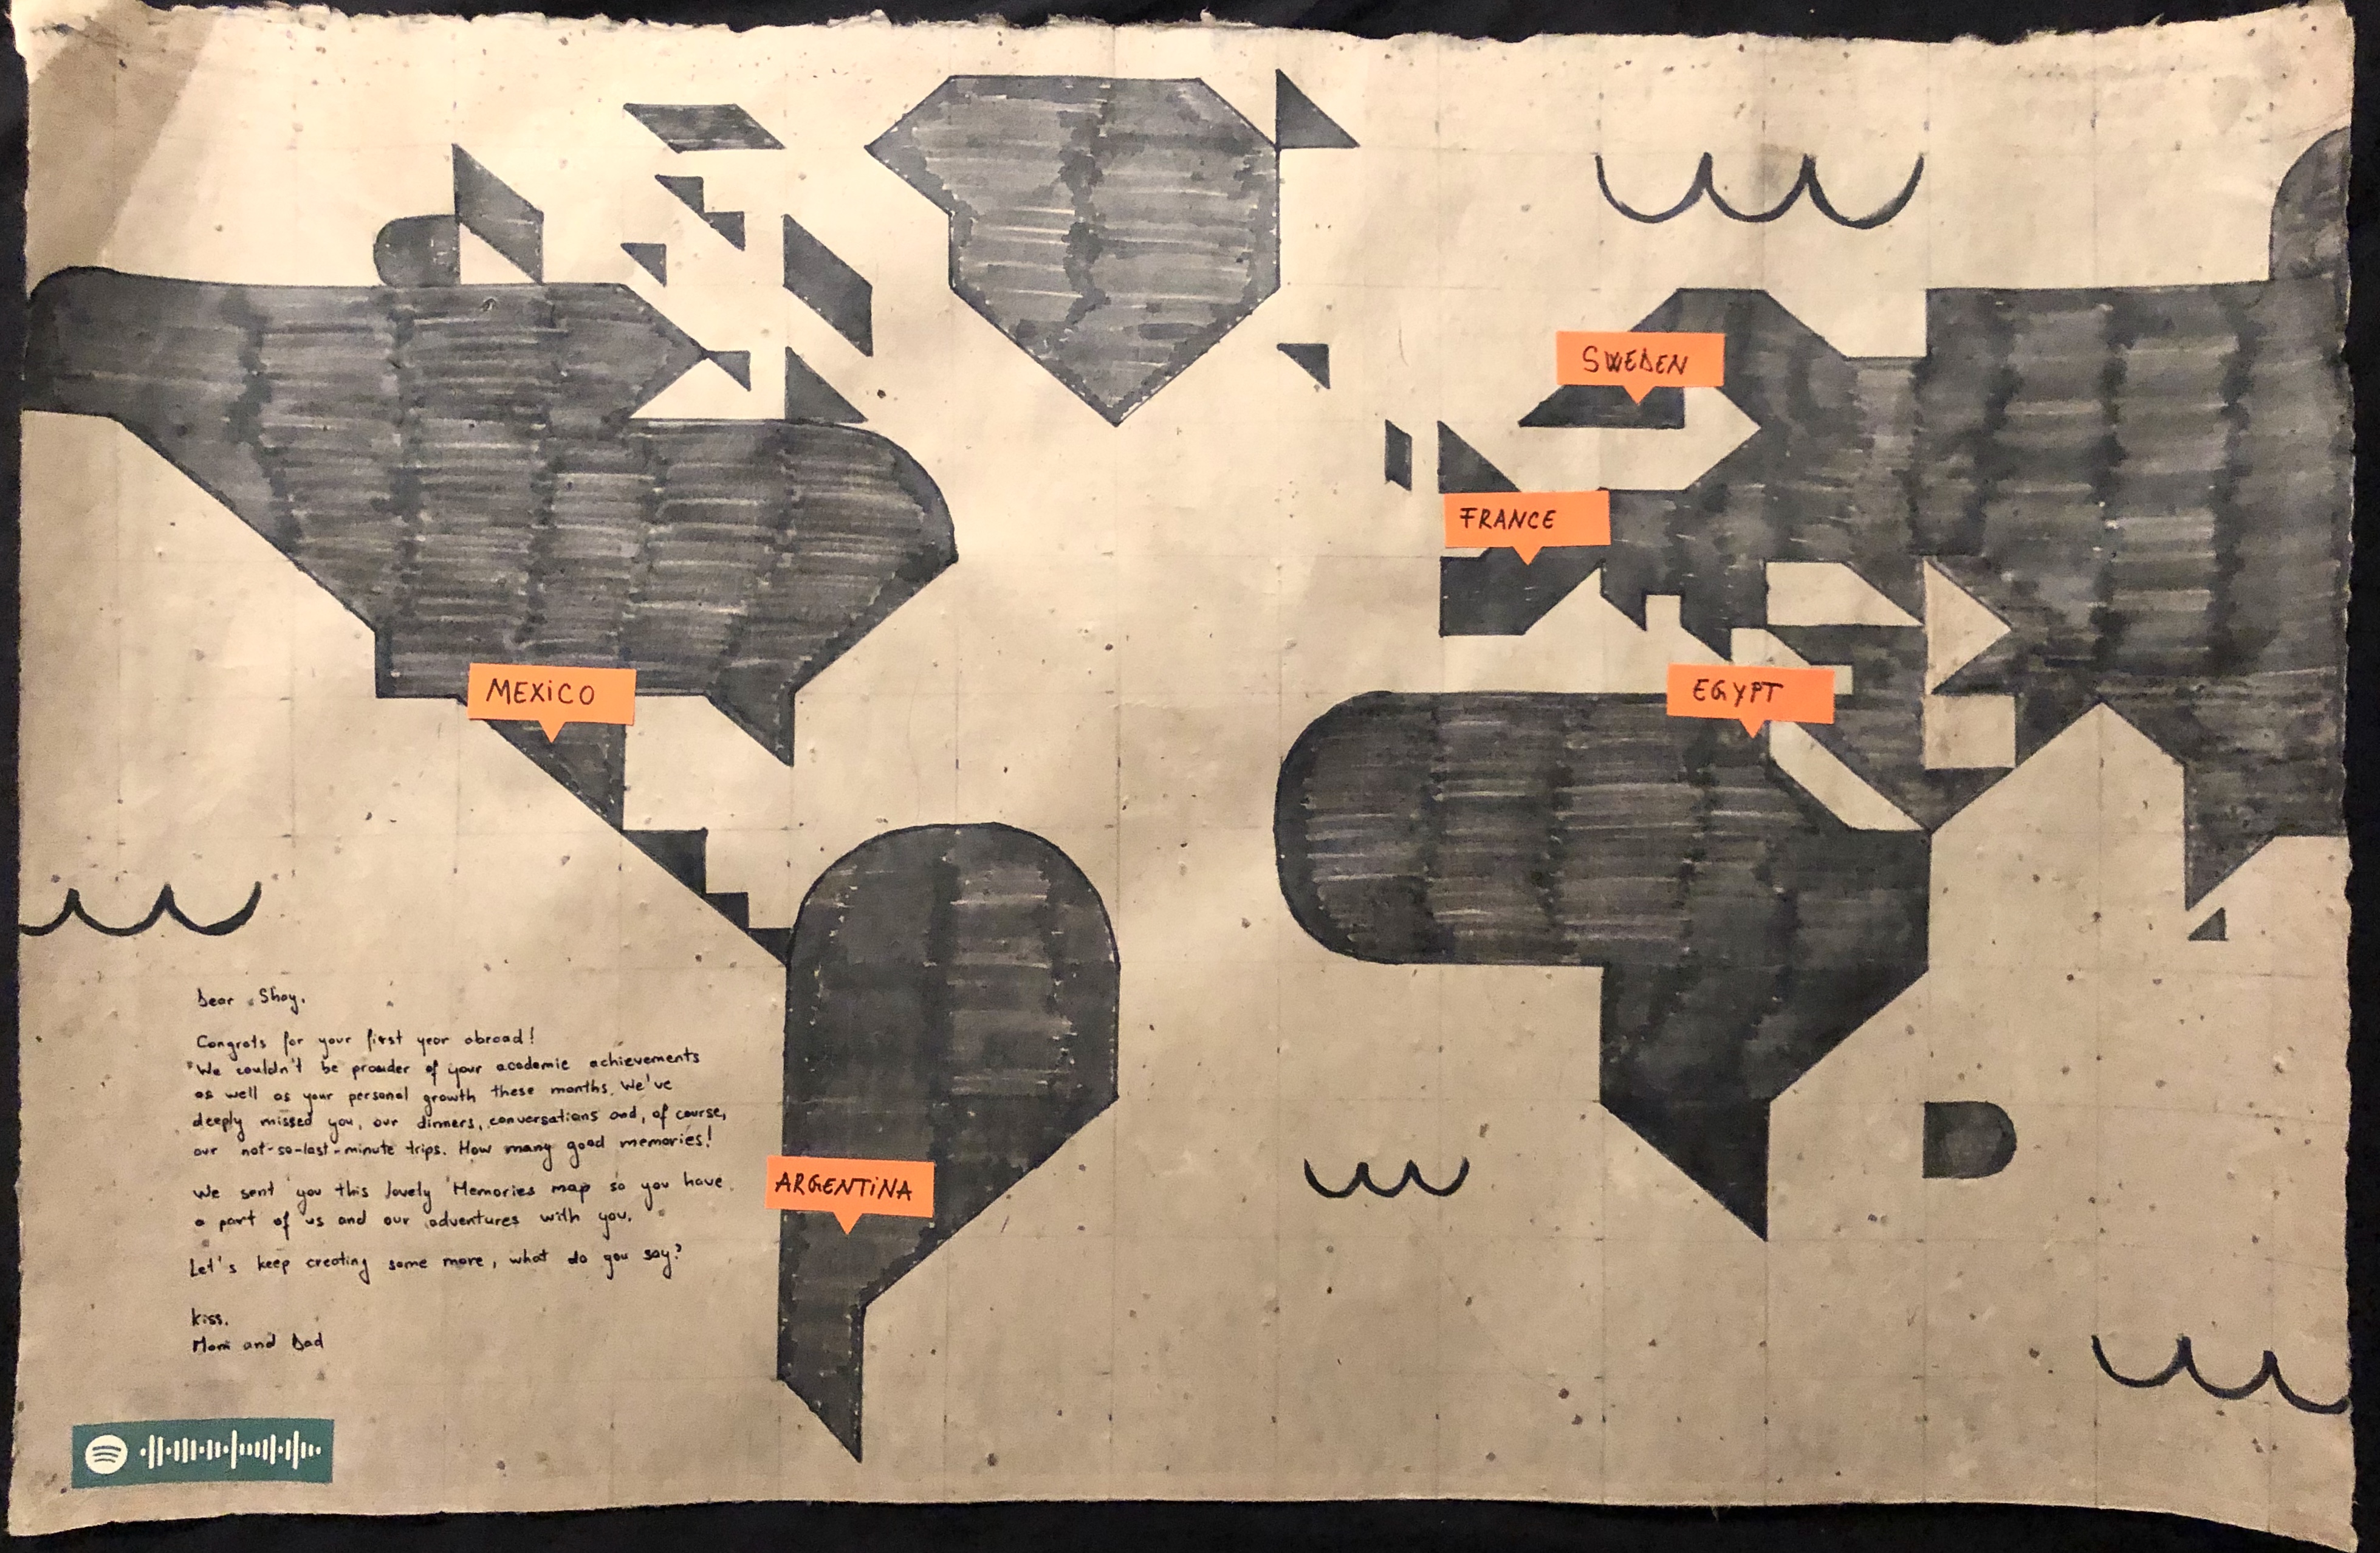 SWEDEN
FRANCE
MEXICO
EGYPT
ARGENTINA
Dear Shay,
Congrats for your first year abroad!
We couldn't be prouder of your academic achievements
as well as your personal growth these months. We've
deeply missed you, our dinners, conversations and, of course,
our not-so-last-minute trips. How many good memories!
We sent you this lovely Memories map so you have
a part of us and our adventures with you.
Let's keep creating some more, what do you say?
Kiss.
Mom and Dad